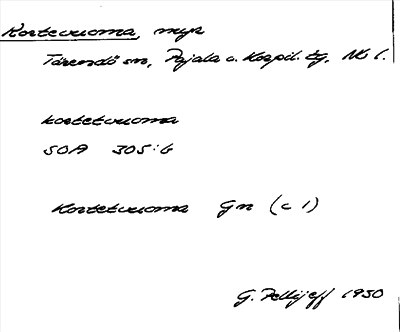 Kortevuoma, myr
Tärendö sn, Pajala o. Korpil. tg, Nb l.
kortetvuoma
SOA 305:6
Kortetvuoma Gn (c 1)
G. Pellijeff 1950